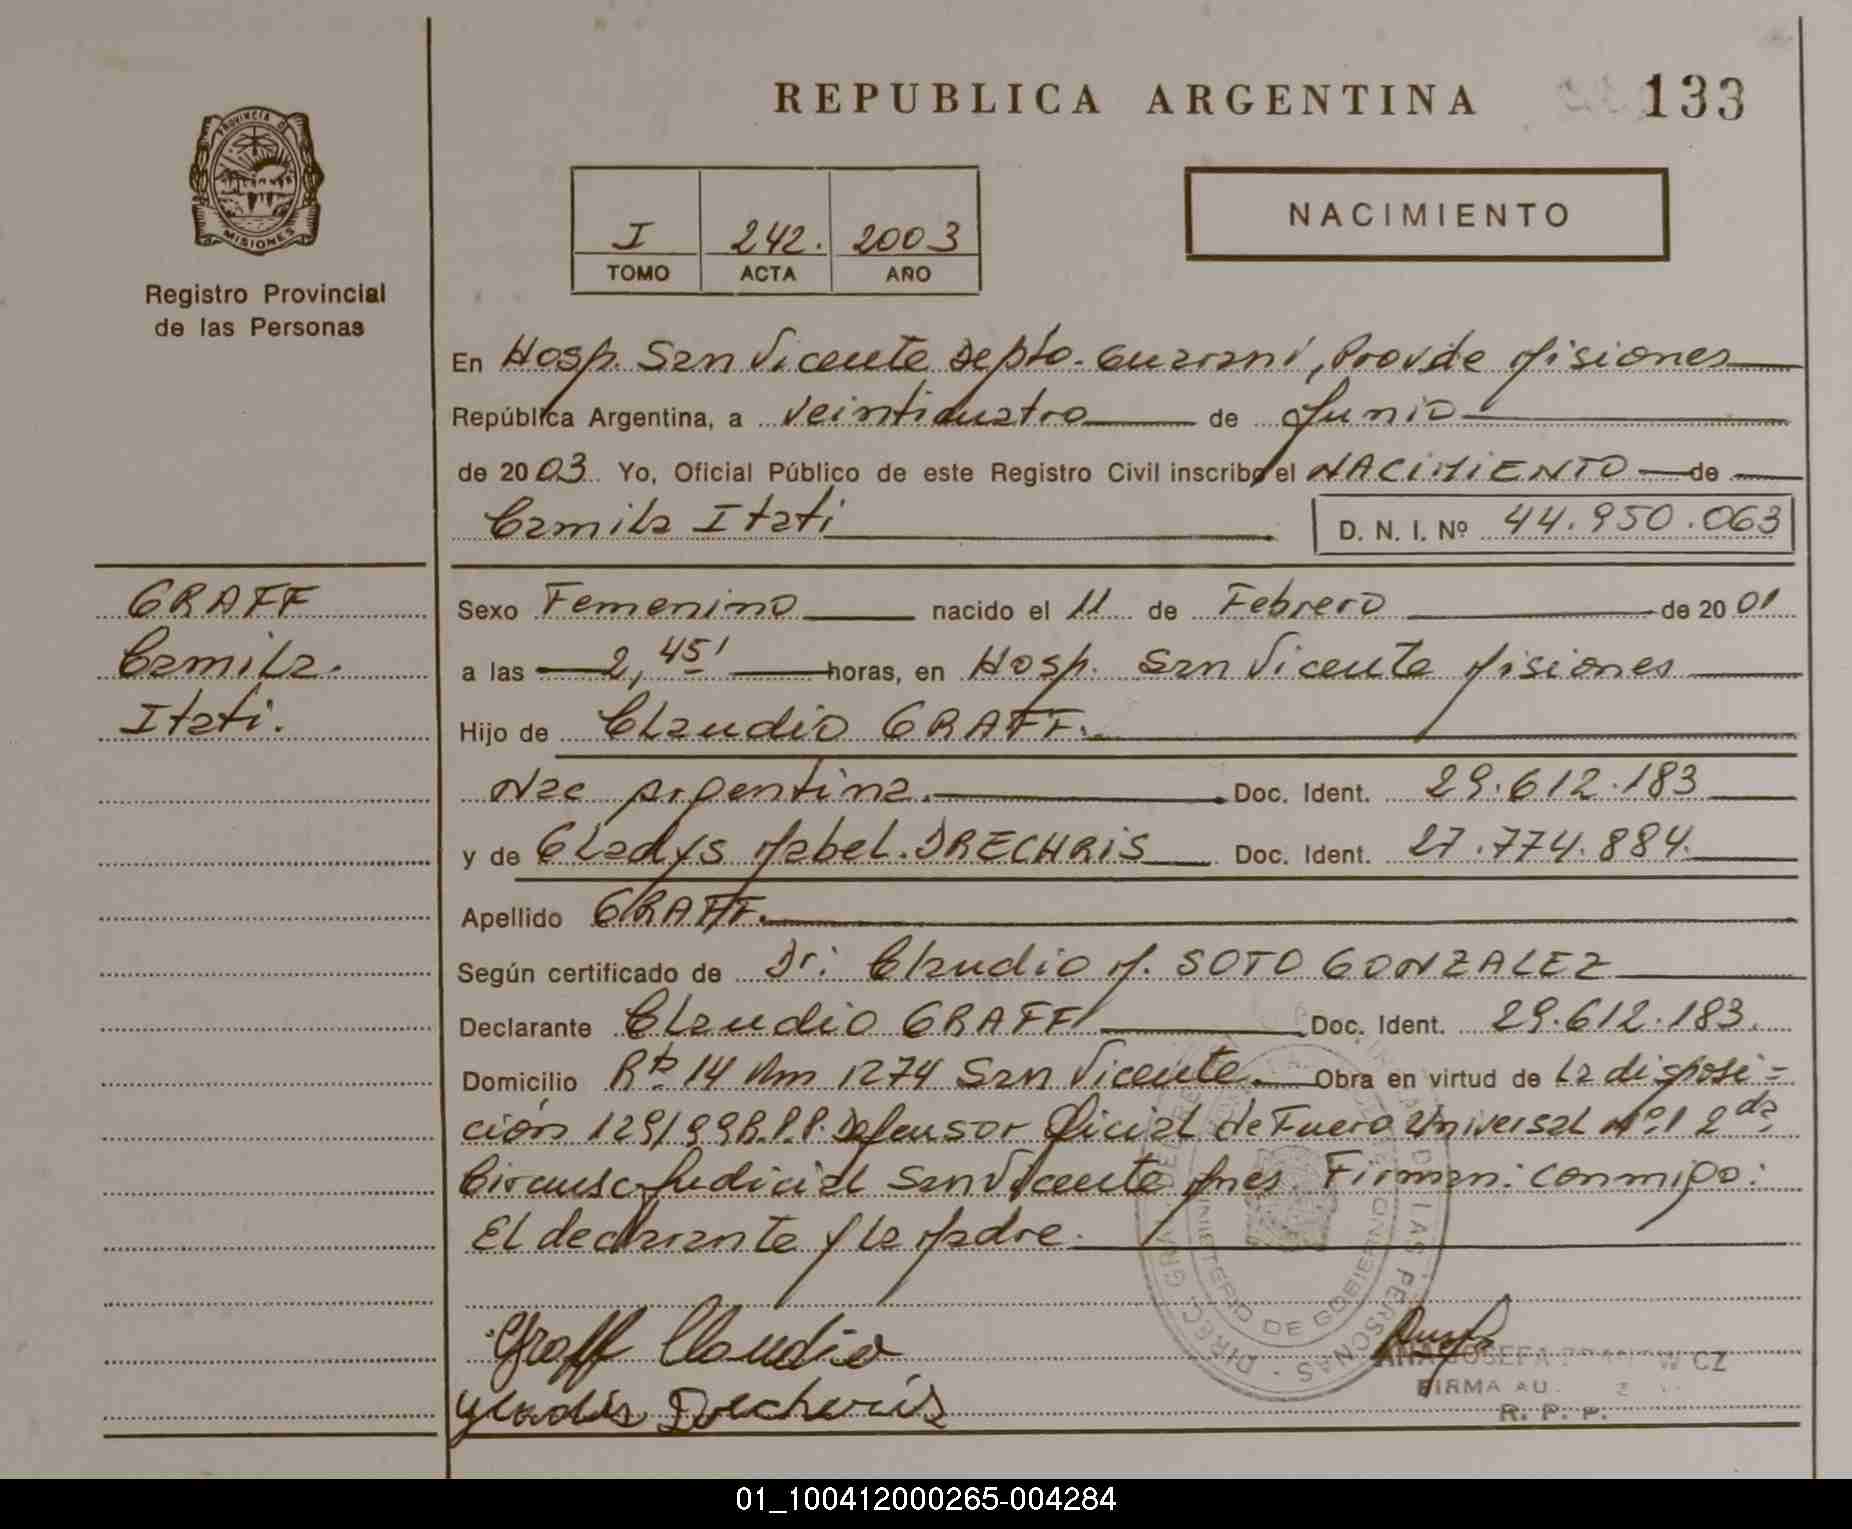 REPUBLICA ARGENTINA
133
PROVINCIA DE
MISIONES
Registro Provincial
de las Personas
I 242. 2003
TOMO ACTA AÑO
NACIMIENTO
En Hosp. San Vicente Depto. Guarani, Prov de Misiones
República Argentina, a veinticuatro de Junio
de 2003 Yo, Oficial Público de este Registro Civil inscribo el NACIMIENTO de
Camila Itati D. N. I. Nº 44.950.063
GRAFF
Camila.
Itati.
Sexo Femenino nacido el 11 de Febrero de 2001
a las 2,45' horas, en Hosp. San Vicente Misiones
Hijo de Claudio GRAFF.
Nac Argentina. Doc. Ident. 29.612.183
y de Gladys Mabel. DRECHRIS Doc. Ident. 27.774.884.
Apellido GRAFF.
Según certificado de Dr: Claudio M. SOTO GONZALEZ
Declarante Claudio GRAFF Doc. Ident. 29.612.183.
Domicilio Rta 14 Km 1274 San Vicente. Obra en virtud de la disposi-
ción 129/99 R.P.P. Defensor Oficial de Fuero Universal Nº1 2da
Circunsc Judicial San Vicente Mnes. Firman: conmigo:
El declarante y la Madre.
Graff Claudio
Gladis Drecheris
MINISTERIO DE GOBIERNO
DE LAS PERSONAS
ANA JOSEFA
FIRMA AU
R. P. P.
01_100412000265-004284